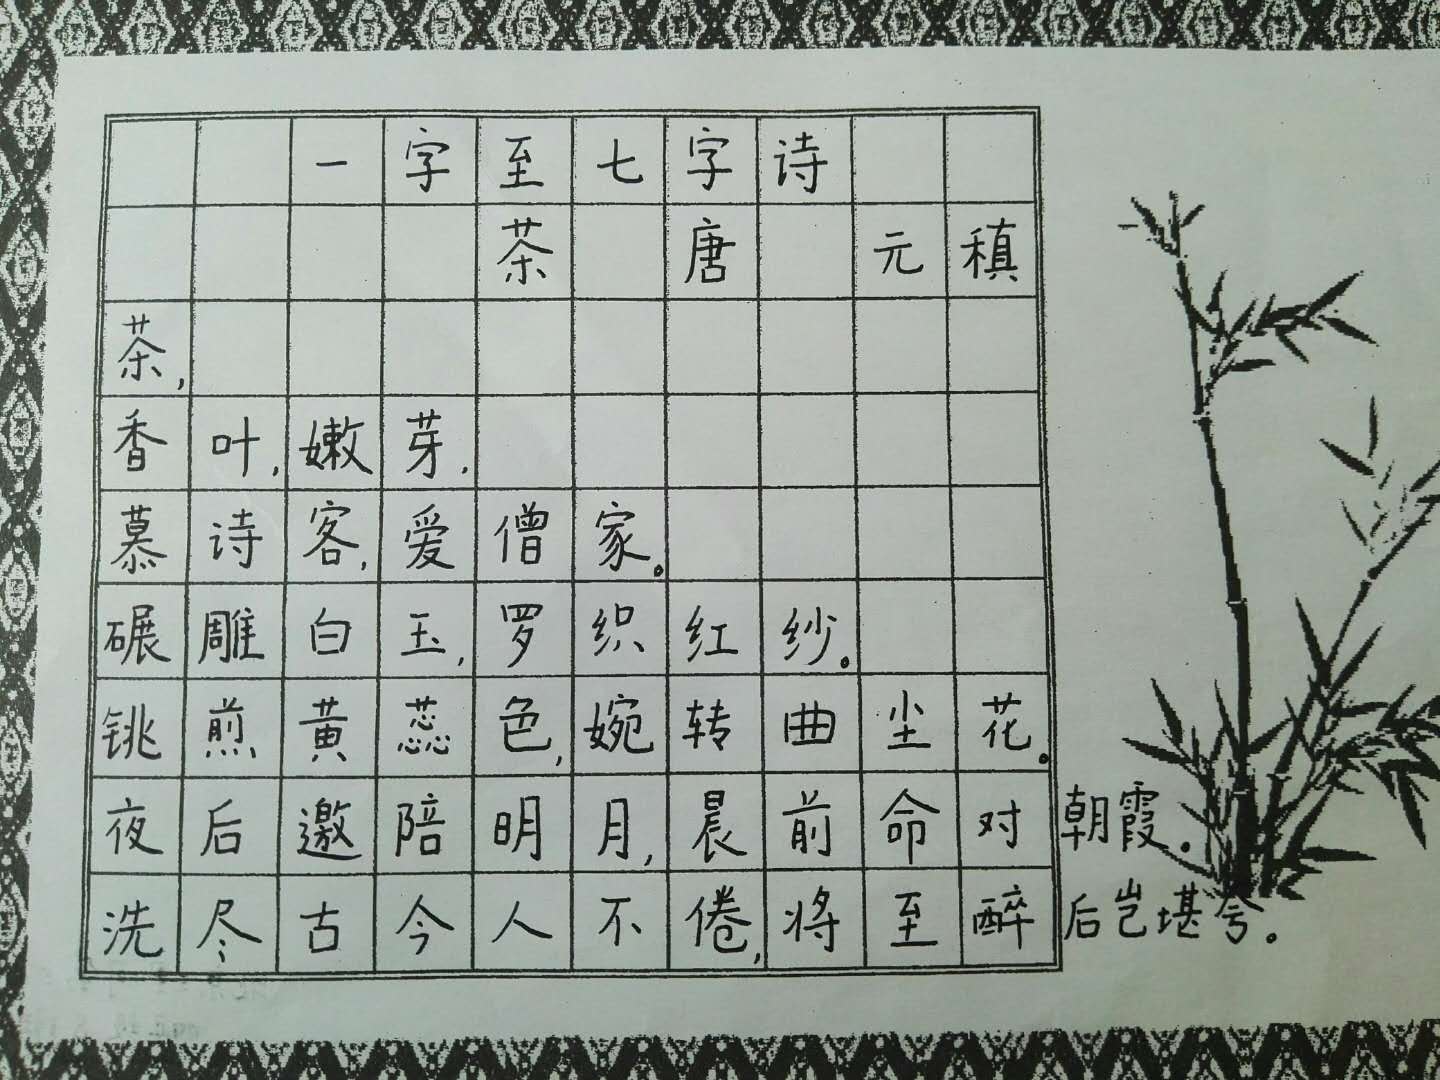 一字至七字诗
茶 唐 元稹
茶,
香叶,嫩芽,
慕诗客,爱僧家。
碾雕白玉,罗织红纱。
铫煎黄蕊色,婉转曲尘花。
夜后邀陪明月,晨前命对朝霞.
洗尽古今人不倦,将至醉后岂堪兮.